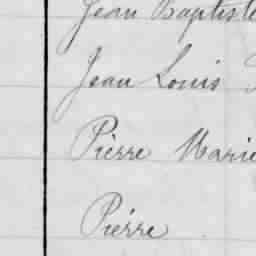 Jean Baptiste
Jean Louis
Pierre Marie
Pierre